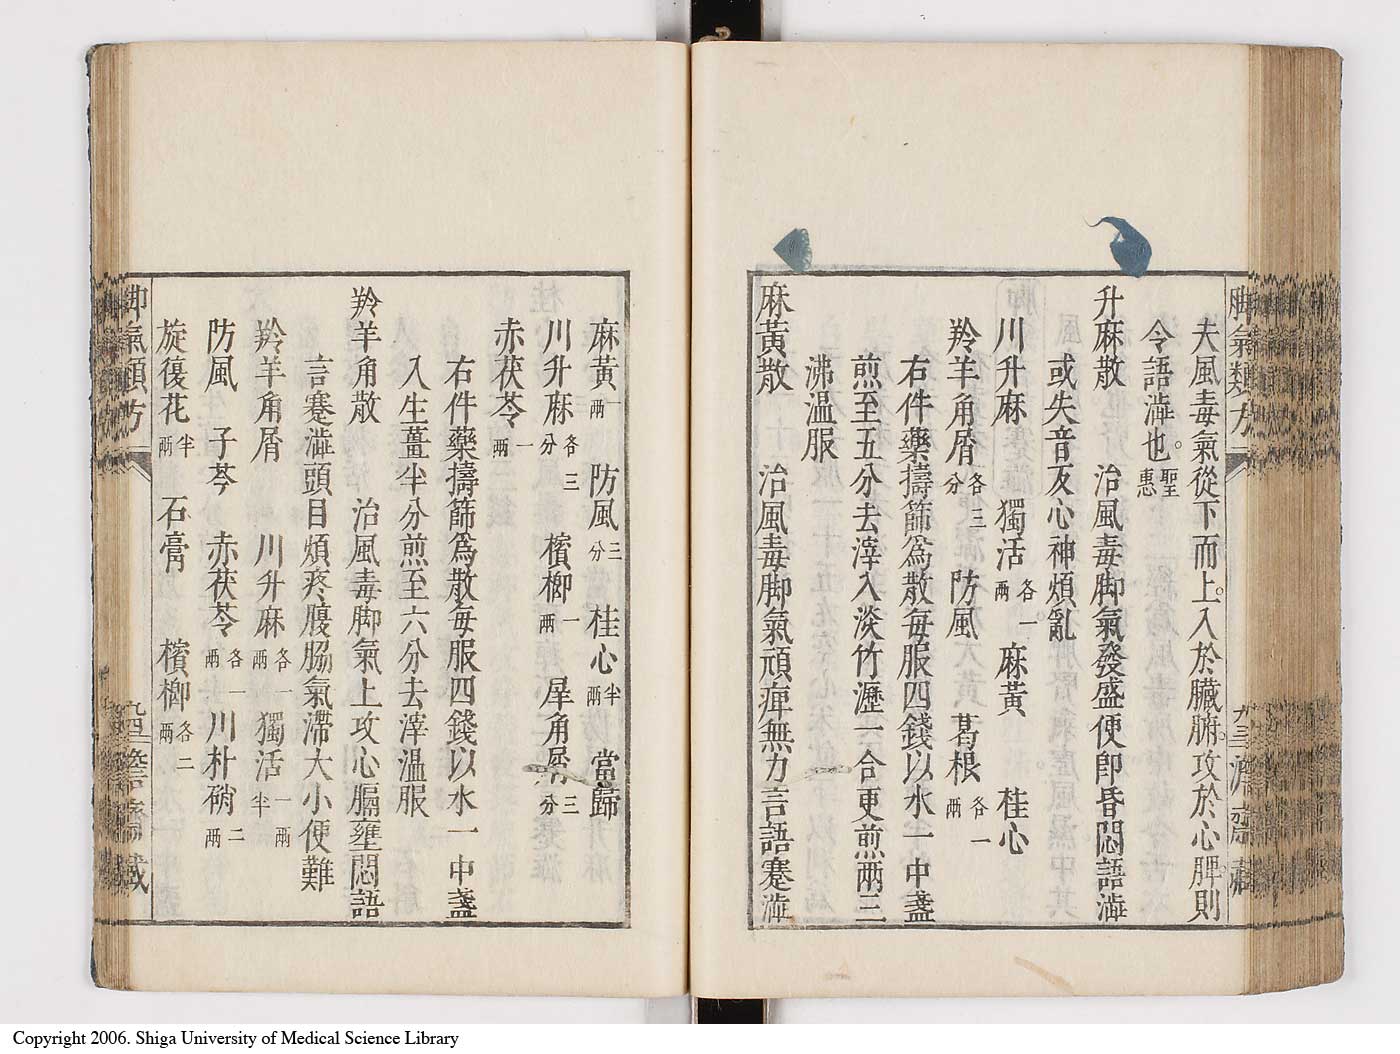 脚氣類方
夫風毒氣從下而上。入於臟腑。攻於心脾。則
令語澁也。聖惠
升麻散　治風毒脚氣發盛便卽昏悶語澁
或失音及心神煩亂
川升麻　獨活各一兩　麻黃　桂心
羚羊角屑各三分　防風　葛根各一兩
右件藥擣篩爲散每服四錢以水一中盞
煎至五分去滓入淡竹瀝一合更煎兩三
沸温服
麻黃散　治風毒脚氣頑痺無力言語蹇澁
麻黃一兩　防風三分　桂心半兩　當歸
川升麻各三分　檳榔一兩　犀角屑三分
赤茯苓一兩
右件藥擣篩爲散每服四錢以水一中盞
入生薑半分煎至六分去滓温服
羚羊角散　治風毒脚氣上攻心膈壅悶語
言蹇澁頭目煩疼腹脇氣滯大小便難
羚羊角屑　川升麻各一兩　獨活一兩半
防風　子芩　赤茯苓各一兩　川朴硝二兩
旋復花半兩　石膏　檳榔各二兩
脚氣類方
九四
Copyright 2006. Shiga University of Medical Science Library